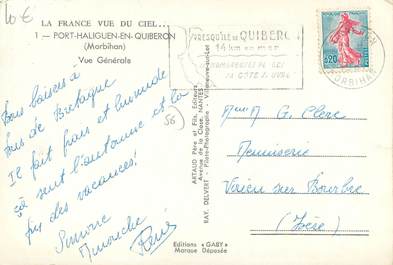 10€
LA FRANCE VUE DU CIEL...
1 — PORT-HALIGUEN-EN-QUIBERON
(Morbihan)
Vue Générale
Bons baisers à
tous de Bretagne
Il fait frais et humide
çà sent l'automne et la
fin des vacances!
Simone
René
56
PRESQU'ILE DE QUIBERON
14 km en mer
LA COTE SAUVAGE
MORBIHAN
0,20
POSTES
ARTAUD Père et Fils, Editeurs
Avenue de la Close, NANTES
RAY. DELVERT - Pilote-Photographe - Villeneuve-sur-Lot
G. Clerc
Menuiserie
Virieu sur Bourbre
(Isère)
Editions « GABY »
Marque Déposée